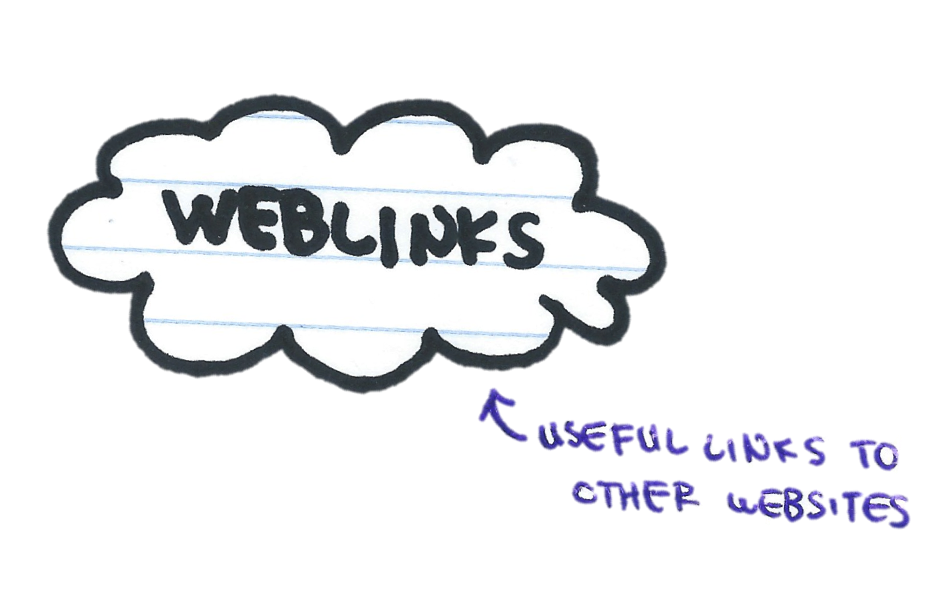 WEBLINKS
USEFUL LINKS TO
OTHER WEBSITES